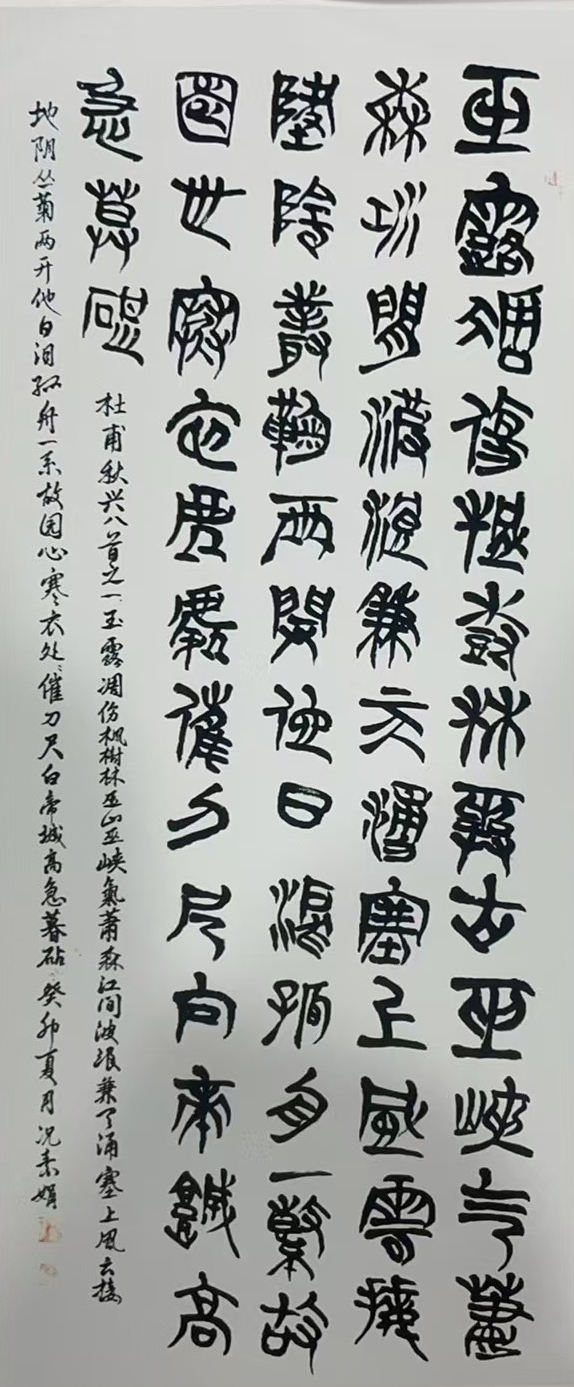 玉露凋傷楓樹林巫山巫峽气蕭
森江間波浪兼天涌塞上風雲接
地陰叢菊兩開他日淚孤舟一繫故
園心寒衣處處催刀尺白帝城高
急暮砧
杜甫秋兴八首之一玉露凋伤枫树林巫山巫峡氣萧森江间波浪兼天涌塞上风云接
地阴丛菊两开他日泪孤舟一系故园心寒衣处〻催刀尺白帝城高急暮砧 癸卯夏月况素娟